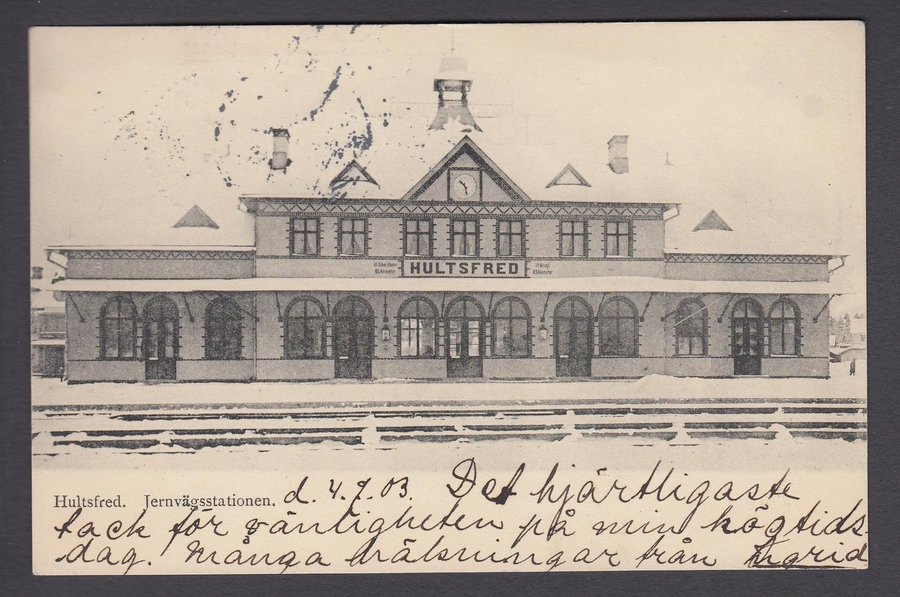 HULTSFRED
Hultsfred. Jernvägsstationen. d. 4.7.03. Det hjärtligaste
tack för vänligheten på min högtids
dag. Många hälsningar från Ingrid